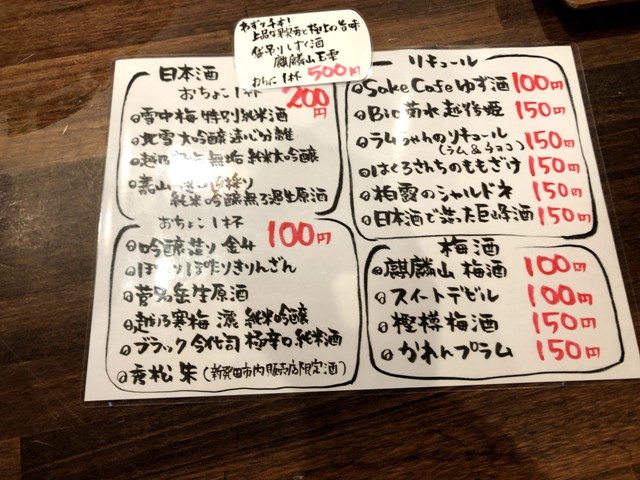 上品な果実香と極上の旨味
袋吊りしずく酒
麒麟山
おちょこ1杯 500円
日本酒
おちょこ1杯 200円
雪中梅 特別純米酒
北雪 大吟醸 遠心分離
無垢 純米大吟醸
嘉山
純米吟醸無ろ過生原酒
おちょこ1杯 100円
吟醸造り 金升
ぽたりぽたりきりんざん
菅名岳生原酒
越乃寒梅 灑 純米吟醸
ブラック 今代司 極辛口 純米酒
秀松 朱(新発田市内販売店限定酒)
リキュール
Sake Cafe ゆず酒 100円
Bio菊水 越後姫 150円
ラムちゃんのリキュール
(ラム&チョコ) 150円
はくろさんちのももざけ 150円
柏露のシャルドネ 150円
日本酒で造った巨峰酒 150円
梅酒
麒麟山 梅酒 100円
スイートデビル 100円
樫樽梅酒 150円
かれんプラム 150円